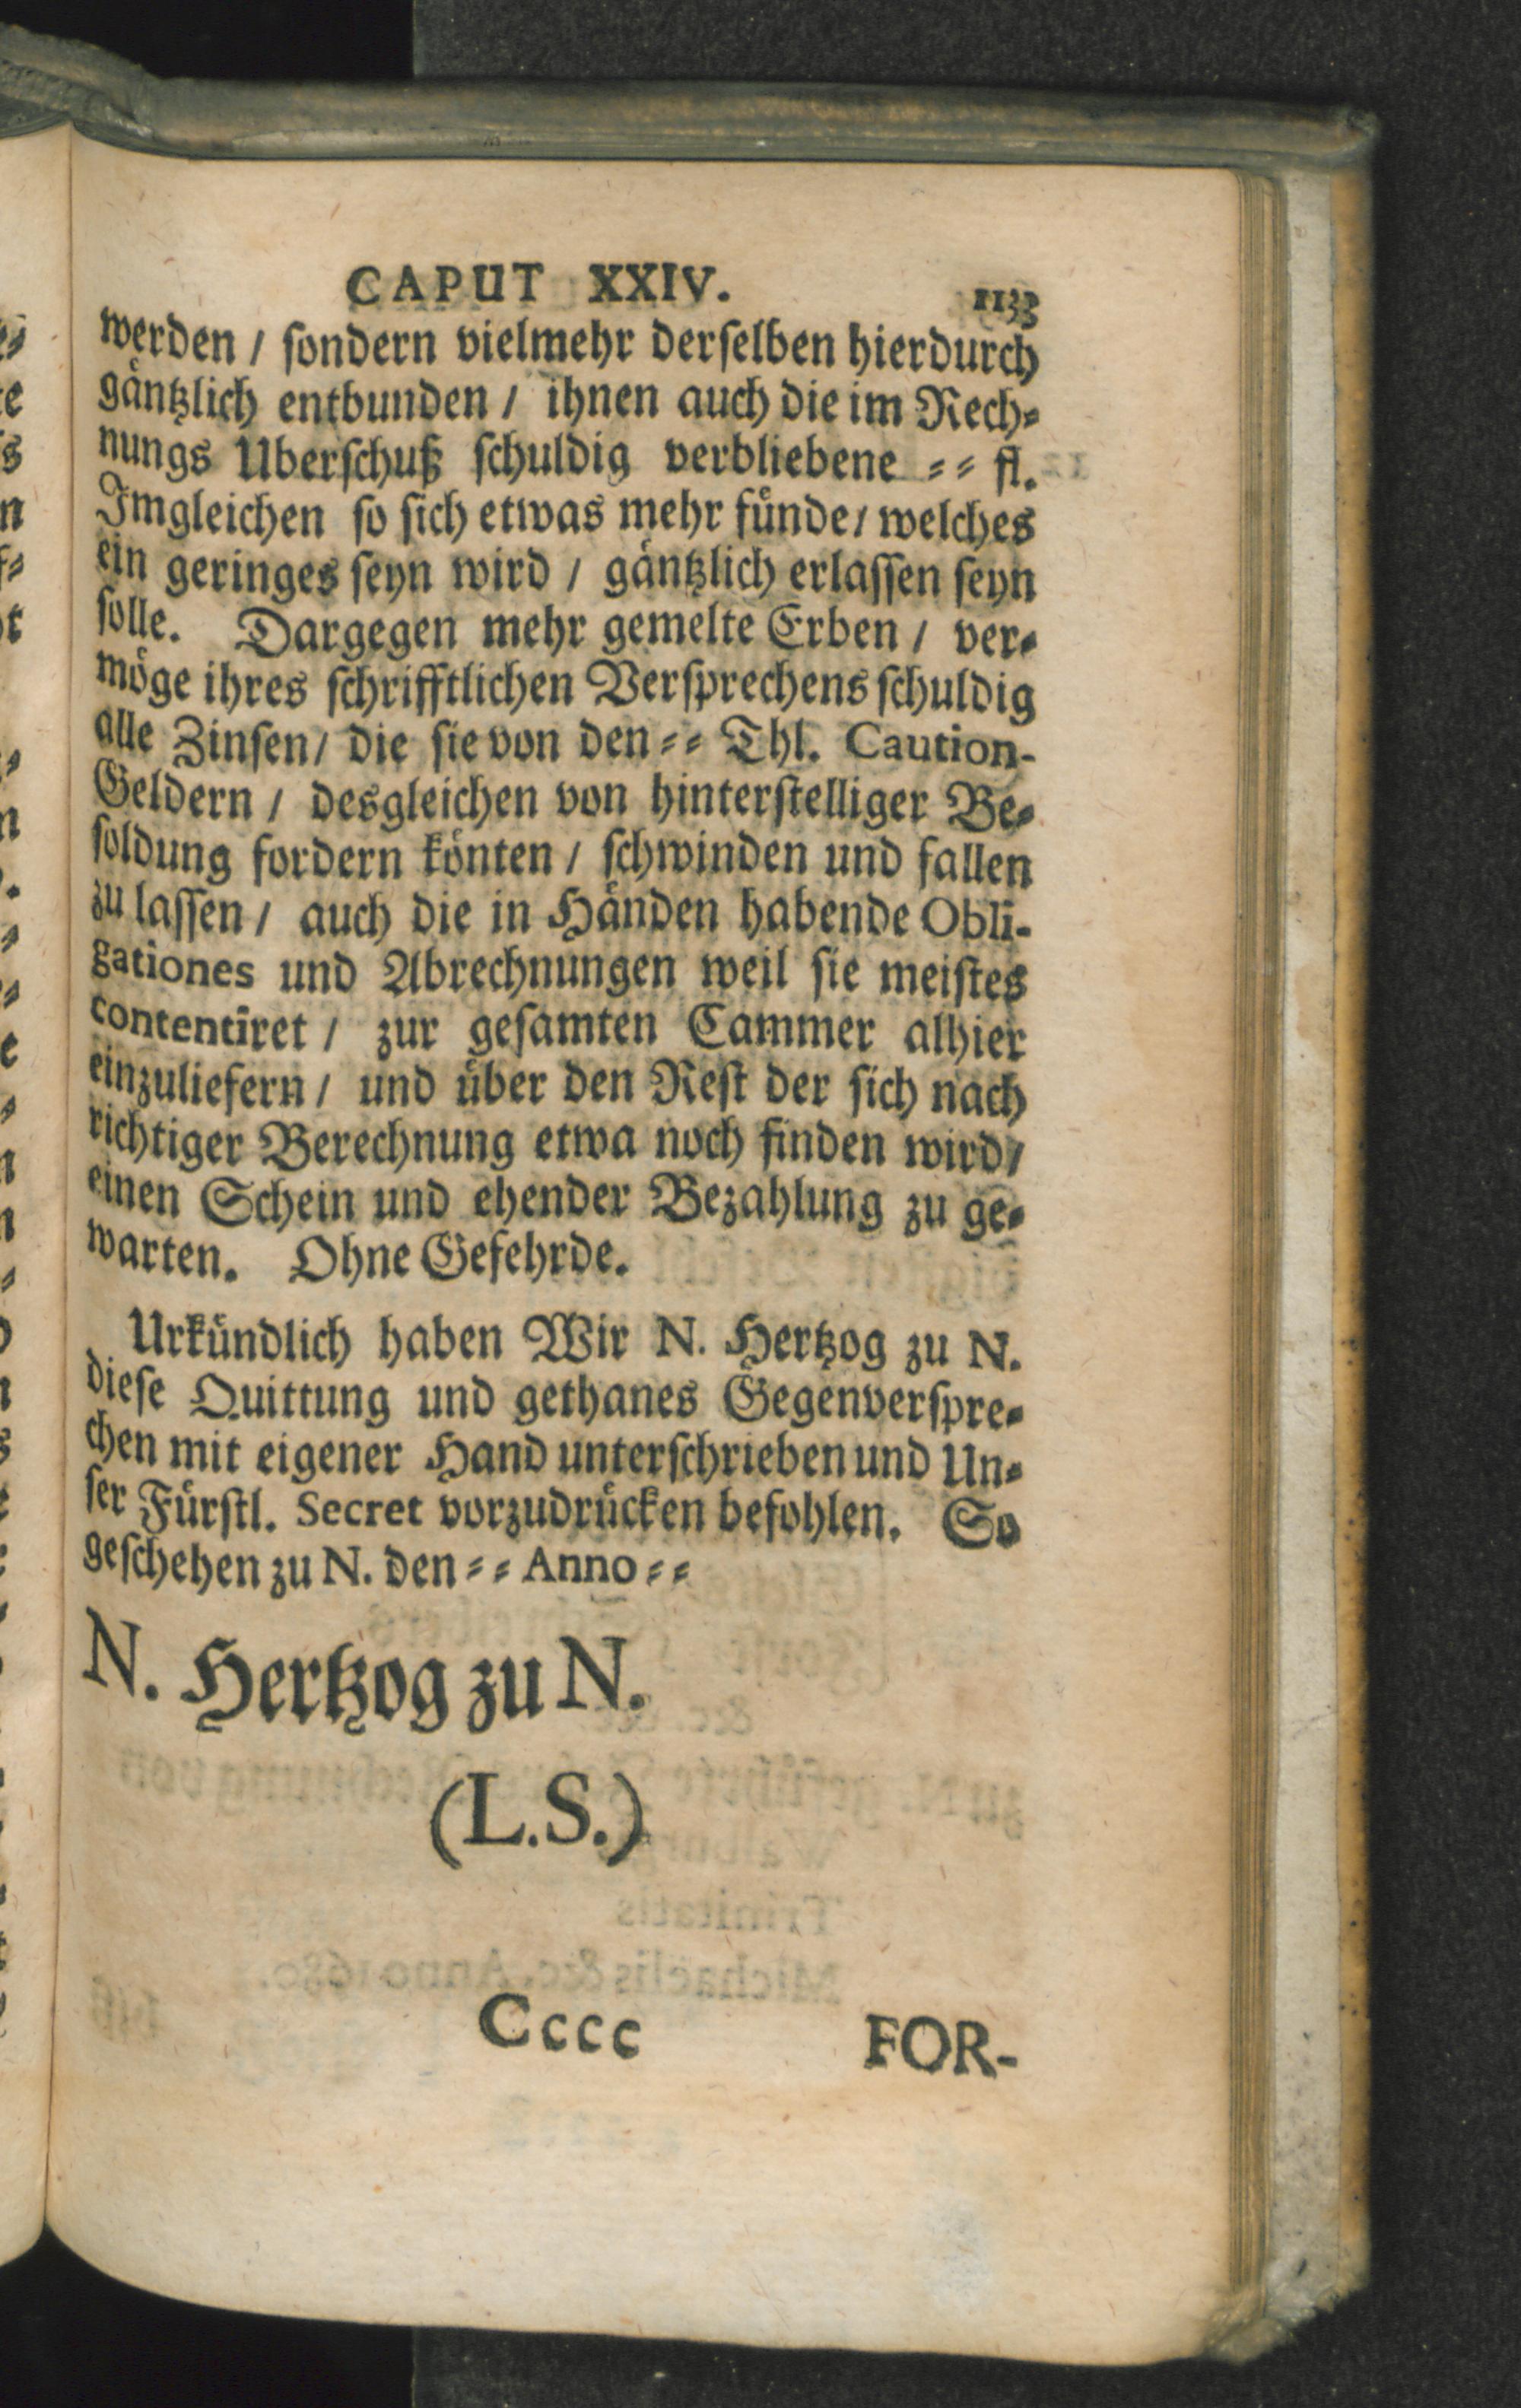 CAPUT XXIV. 1133
werden / sondern vielmehr derselben hierdurch
gäntzlich entbunden / ihnen auch die im Rech⸗
nungs Uberschuß schuldig verbliebene ⸗ ⸗ fl.
Imgleichen so sich etwas mehr fünde / welches
ein geringes seyn wird / gäntzlich erlassen seyn
solle. Dargegen mehr gemelte Erben / ver⸗
möge ihres schrifftlichen Versprechens schuldig
alle Zinsen / die sie von den ⸗ ⸗ Thl. Caution-
Geldern / desgleichen von hinterstelliger Be⸗
soldung fordern könten / schwinden und fallen
zu lassen / auch die in Händen habende Obli-
gationes und Abrechnungen weil sie meistes
contentiret / zur gesamten Cammer alhier
einzuliefern / und über den Rest der sich nach
richtiger Berechnung etwa noch finden wird /
einen Schein und ehender Bezahlung zu ge⸗
warten. Ohne Gefehrde.
Urkündlich haben Wir N. Hertzog zu N.
diese Quittung und gethanes Gegenverspre⸗
chen mit eigener Hand unterschrieben und Un⸗
ser Fürstl. Secret vorzudrücken befohlen. So
geschehen zu N. den ⸗ ⸗ Anno ⸗ ⸗
N. Hertzog zu N.
(L.S.)
Cccc FOR-